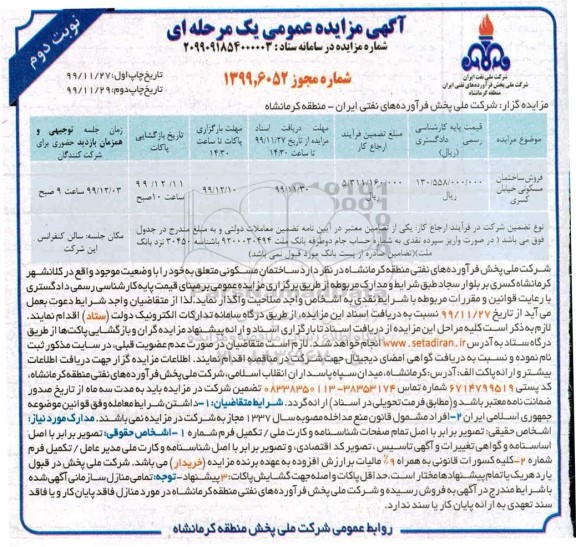 نوبت دوم
آگهی مزایده عمومی یک مرحله ای
شماره مزایده در سامانه ستاد : ۲۰۹۹۰۹۱۸۵۴۰۰۰۰۰۳
شماره مجوز ۱۳۹۹,۶۰۵۲
تاریخ چاپ اول: ۹۹/۱۱/۲۷
تاریخ چاپ دوم: ۹۹/۱۱/۲۹
شرکت ملی نفت ایران
شرکت ملی پخش فرآورده‌های نفتی ایران
منطقه کرمانشاه
مزایده گزار: شرکت ملی پخش فرآورده‌های نفتی ایران - منطقه کرمانشاه
موضوع مزایده
قیمت پایه کارشناسی رسمی دادگستری (ریال)
مبلغ تضمین فرآیند ارجاع کار
مهلت دریافت اسناد مزایده از تاریخ ۹۹/۱۱/۲۷ تا ساعت ۱۴:۳۰
مهلت بارگزاری پاکات تا ساعت ۱۴:۳۰
تاریخ بازگشایی پاکات
زمان جلسه توجیهی و همزمان بازدید حضوری برای شرکت کنندگان
فروش ساختمان مسکونی خیابان کسری
۱۳۰/۵۵۸/۰۰۰/۰۰۰ ریال
۵/۳۱۱/۱۶۰/۰۰۰ ریال
۹۹/۱۱/۳۰
۹۹/۱۲/۱۰
۹۹/۱۲/۱۱ ساعت ۱۰صبح
۹۹/۱۲/۰۳ ساعت ۹ صبح
نوع تضمین شرکت در فرآیند ارجاع کار: یکی از تضامین معتبر در آیین نامه تضمین معاملات دولتی و به مبلغ مندرج در جدول
فوق می باشد ( در صورت واریز سپرده نقدی به شماره حساب جام دوطرفه بانک ملت ۹۲۰۰۰۳۰۴۹۴ باشناسه ۳۰۴۵۰ نزد بانک
ملت)(تضامین صادره از پست بانک مورد قبول نمی باشد)
مکان جلسه: سالن کنفرانس این شرکت
شرکت ملی پخش فرآورده‌های نفتی منطقه کرمانشاه در نظر دارد ساختمان مسکونی متعلق به خود را با وضعیت موجود واقع در کلانشهر
کرمانشاه کسری بر بلوار سجاد طبق شرایط و مدارک مربوطه از طریق برگزاری مزایده عمومی بر مبنای قیمت پایه کارشناسی رسمی دادگستری
با رعایت قوانین و مقررات مربوطه با شرایط نقدی به اشخاص واجد صلاحیت واگذار نماید. لذا از متقاضیان واجد شرایط دعوت بعمل
می آید از تاریخ ۹۹/۱۱/۲۷ نسبت به دریافت اسناد این مزایده، از طریق درگاه سامانه تدارکات الکترونیک دولت (ستاد) اقدام نمایند.
لازم به ذکر است کلیه مراحل این مزایده از دریافت اسناد تا بارگزاری اسناد و ارائه پیشنهاد مزایده گران و بازگشایی پاکت‌ها از طریق
درگاه ستاد به آدرس www.setadiran.ir انجام خواهد شد. لازم است متقاضیان در صورت عدم عضویت قبلی، در سایت مذکور ثبت
نام نموده و نسبت به دریافت گواهی امضای دیجیتال جهت شرکت در مناقصه اقدام نمایند. اطلاعات مزایده گزار جهت دریافت اطلاعات
بیشتر و ارائه پاکت الف: آدرس: کرمانشاه، میدان سپاه پاسداران انقلاب اسلامی، شرکت ملی پخش فرآورده‌های نفتی منطقه کرمانشاه،
کد پستی ۶۷۱۴۷۹۹۵۱۹ شماره تماس ۳۸۳۵۳۱۷۴-۰۸۳۳۸۳۵۰۱۱۳ تضمین شرکت در مزایده باید به مدت سه ماه از تاریخ صدور
ضمانت نامه معتبر باشد و (مطابق فرمت تحویلی در اسناد) ارائه گردد. شرایط متقاضیان: ۱-داشتن شرایط معامله وفق قوانین موضوعه
جمهوری اسلامی ایران ۲-افراد مشمول قانون منع مداخله مصوبه سال ۱۳۳۷ مجاز به شرکت در مزایده نمی باشند. مدارک مورد نیاز:
اشخاص حقیقی: تصویر برابر با اصل تمام صفحات شناسنامه و کارت ملی / تکمیل فرم شماره ۱ -اشخاص حقوقی: تصویر برابر با اصل
اساسنامه و گواهی تغییرات و آگهی تاسیس ، تصویر کد اقتصادی، و تصویر برابر با اصل شناسنامه و کارت ملی مدیر عامل / تکمیل فرم
شماره ۲-کلیه کسورات قانونی به همراه ۹٪ مالیات بر ارزش افزوده به عهده برنده مزایده (خریدار) می باشد. شرکت ملی پخش در قبول
یا رد هر یک یا تمام پیشنهادها مختار است. حداقل پاکات واصله جهت گشایش پاکات: ۳ پیشنهاد -توجه: تمامی منازل سازمانی آگهی شده
با شرایط مندرج در آگهی به فروش رسیده و شرکت ملی پخش فرآورده‌های نفتی منطقه کرمانشاه در مورد منازل فاقد پایان کار و یا فاقد
سند تعهدی به ارائه پایان کار یا سند ندارد.
روابط عمومی شرکت ملی پخش منطقه کرمانشاه